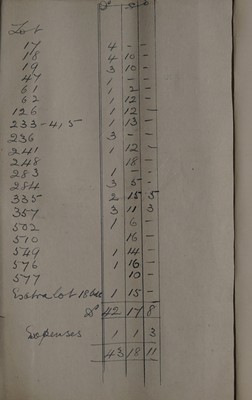 Lot
17 4 - -
18 4 10 -
19 3 10 -
47 1 - -
61 1 2 -
62 1 12 -
126 1 12 -
233-4, 5 1 13 -
236 3 - -
241 1 12 -
248 18 -
283 1 - -
284 3 5 -
335 2 15 5
357 3 11 3
502 1 6 -
510 16 -
549 1 14 -
576 1 16 -
577 10 -
Extra lot 1 15 -
42 17 8
Expenses 1 1 3
43 18 11